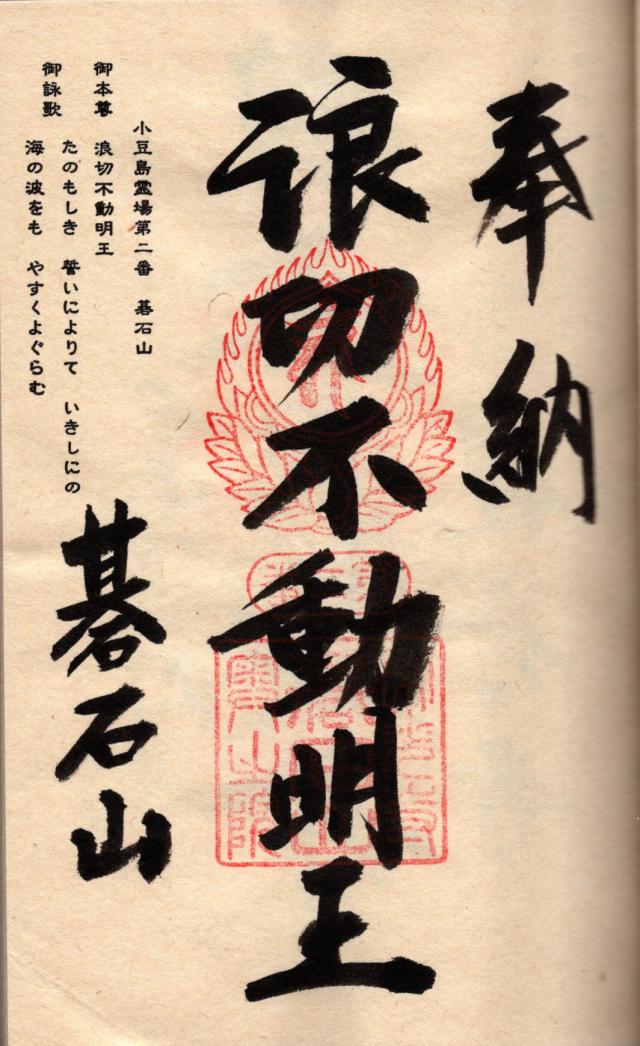 奉納
浪切不動明王
碁石山
小豆島霊場第二番 碁石山
御本尊 浪切不動明王
御詠歌
たのもしき 誓いによりて いきしにの
海の波をも やすくよぐらむ